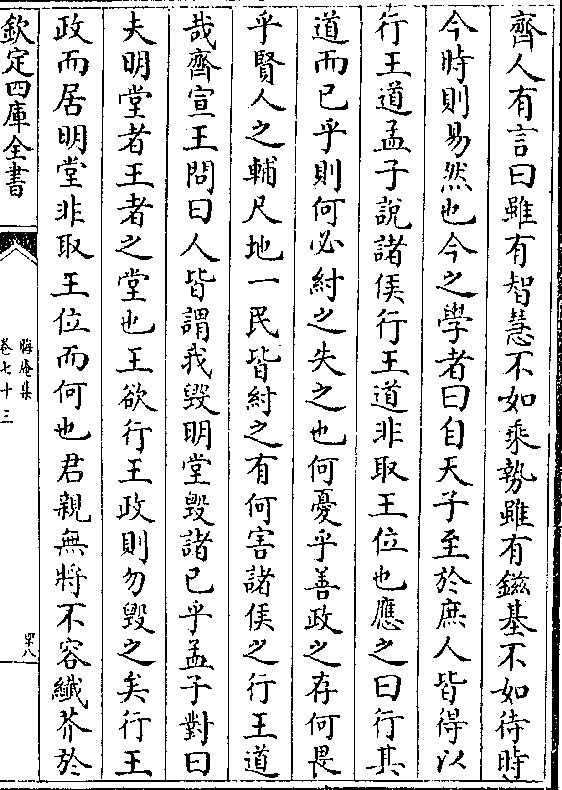 齊人有言曰雖有智慧不如乘勢雖有鎡基不如待時
今時則易然也今之學者曰自天子至於庶人皆得以
行王道孟子說諸侯行王道非取王位也應之曰行其
道而已乎則何必紂之失之也何憂乎善政之存何畏
乎賢人之輔尺地一民皆紂之有何害諸侯之行王道
哉齊宣王問曰人皆謂我毀明堂毀諸已乎孟子對曰
夫明堂者王者之堂也王欲行王政則勿毀之矣行王
政而居明堂非取王位而何也君親無將不容纖芥於
欽定四庫全書
晦庵集
卷七十三
四十八